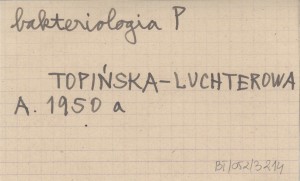 bakteriologia P
TOPIŃSKA-LUCHTEROWA
A. 1950 a
BI/052/3214